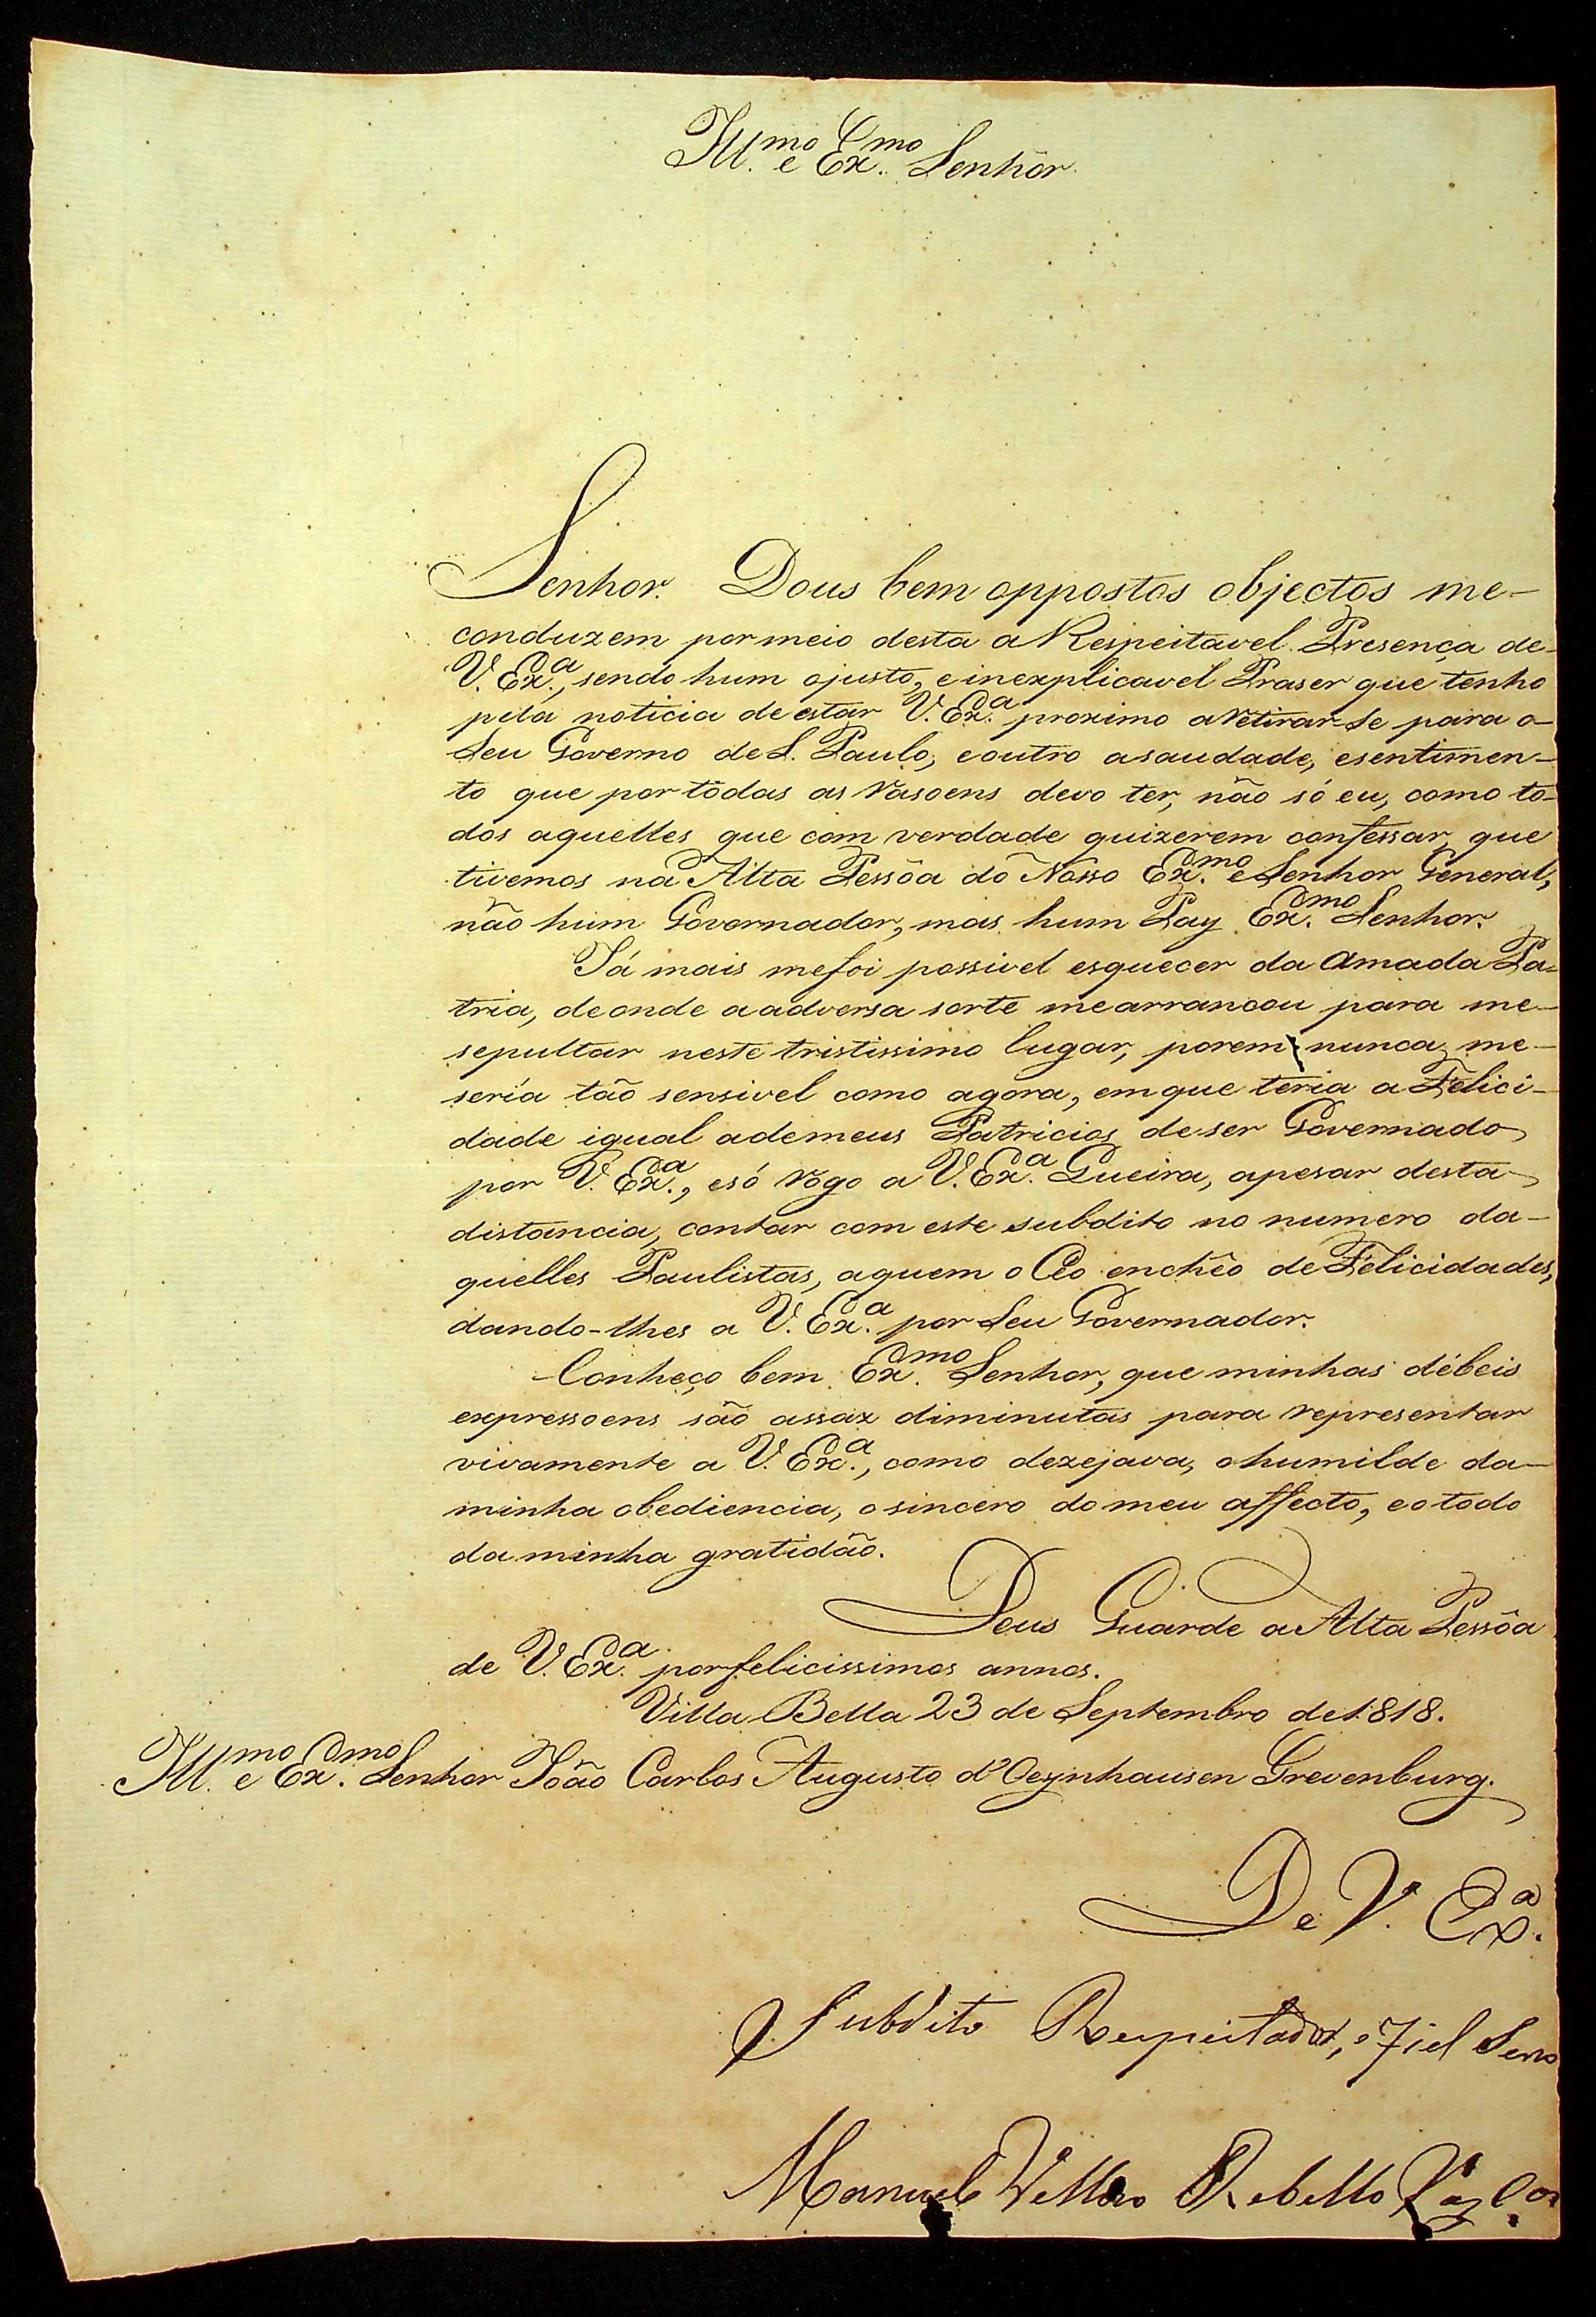 Ill.mo e Ex.mo Senhôr.
Senhor. Dous bem oppostos objectos me-
conduzem por meio desta a Respeitavel Presença de-
V. Ex.a, sendo hum ojusto, e inexplicavel Praser que tenho
pela noticia de estar V. Ex.a proximo aretirar-se para o-
Seu Governo de S. Paulo, e outro asaudade, esentimen-
to que por tôdas as rasoens devo ter, não só eu, como to-
dos aquelles que com verdade quizerem confessar, que
tivemos na Alta Pessôa do Nosso Ex.mo e Senhor General,
não hum Governador, mas hum Pay Ex.mo Senhor.
Já mais mefoi possivel esquecer da Amada Pa-
tria, deonde aadversa sorte mearrancou para me-
sepultar neste tristissimo lugar, porem nunca me-
sería tão sensivel como agora, emque teria a Felici-
dade igual ademeus Patricios de ser Governado
por V. Ex.a, esó rogo a V. Ex.a Queira, apesar desta
distancia, contar com este subdito no numero da-
quelles Paulistas, aquem o Ceo enchêo de Felicidades,
dando-lhes a V. Ex.a por Seu Governador.
Conheço bem Ex.mo Senhor, que minhas débeis
expressoens são assaz diminutas para representar
vivamente a V. Ex.a, como dezejava, ohumilde da-
minha obediencia, osincero do meu affecto, eotodo
da minha gratidão.
Deus Guarde a Alta Pessôa
de V. Ex.a por felicissimos annos.
Villa Bella 23 de Septembro de 1818.
Ill.mo e Ex.mo Senhor João Carlos Augusto d'Oeynhausen Grevenburg.
De V. Ex.a
Subdito Respeitador, e Fiel Servo
Manuel Velloso Rebello Vaz.Cos